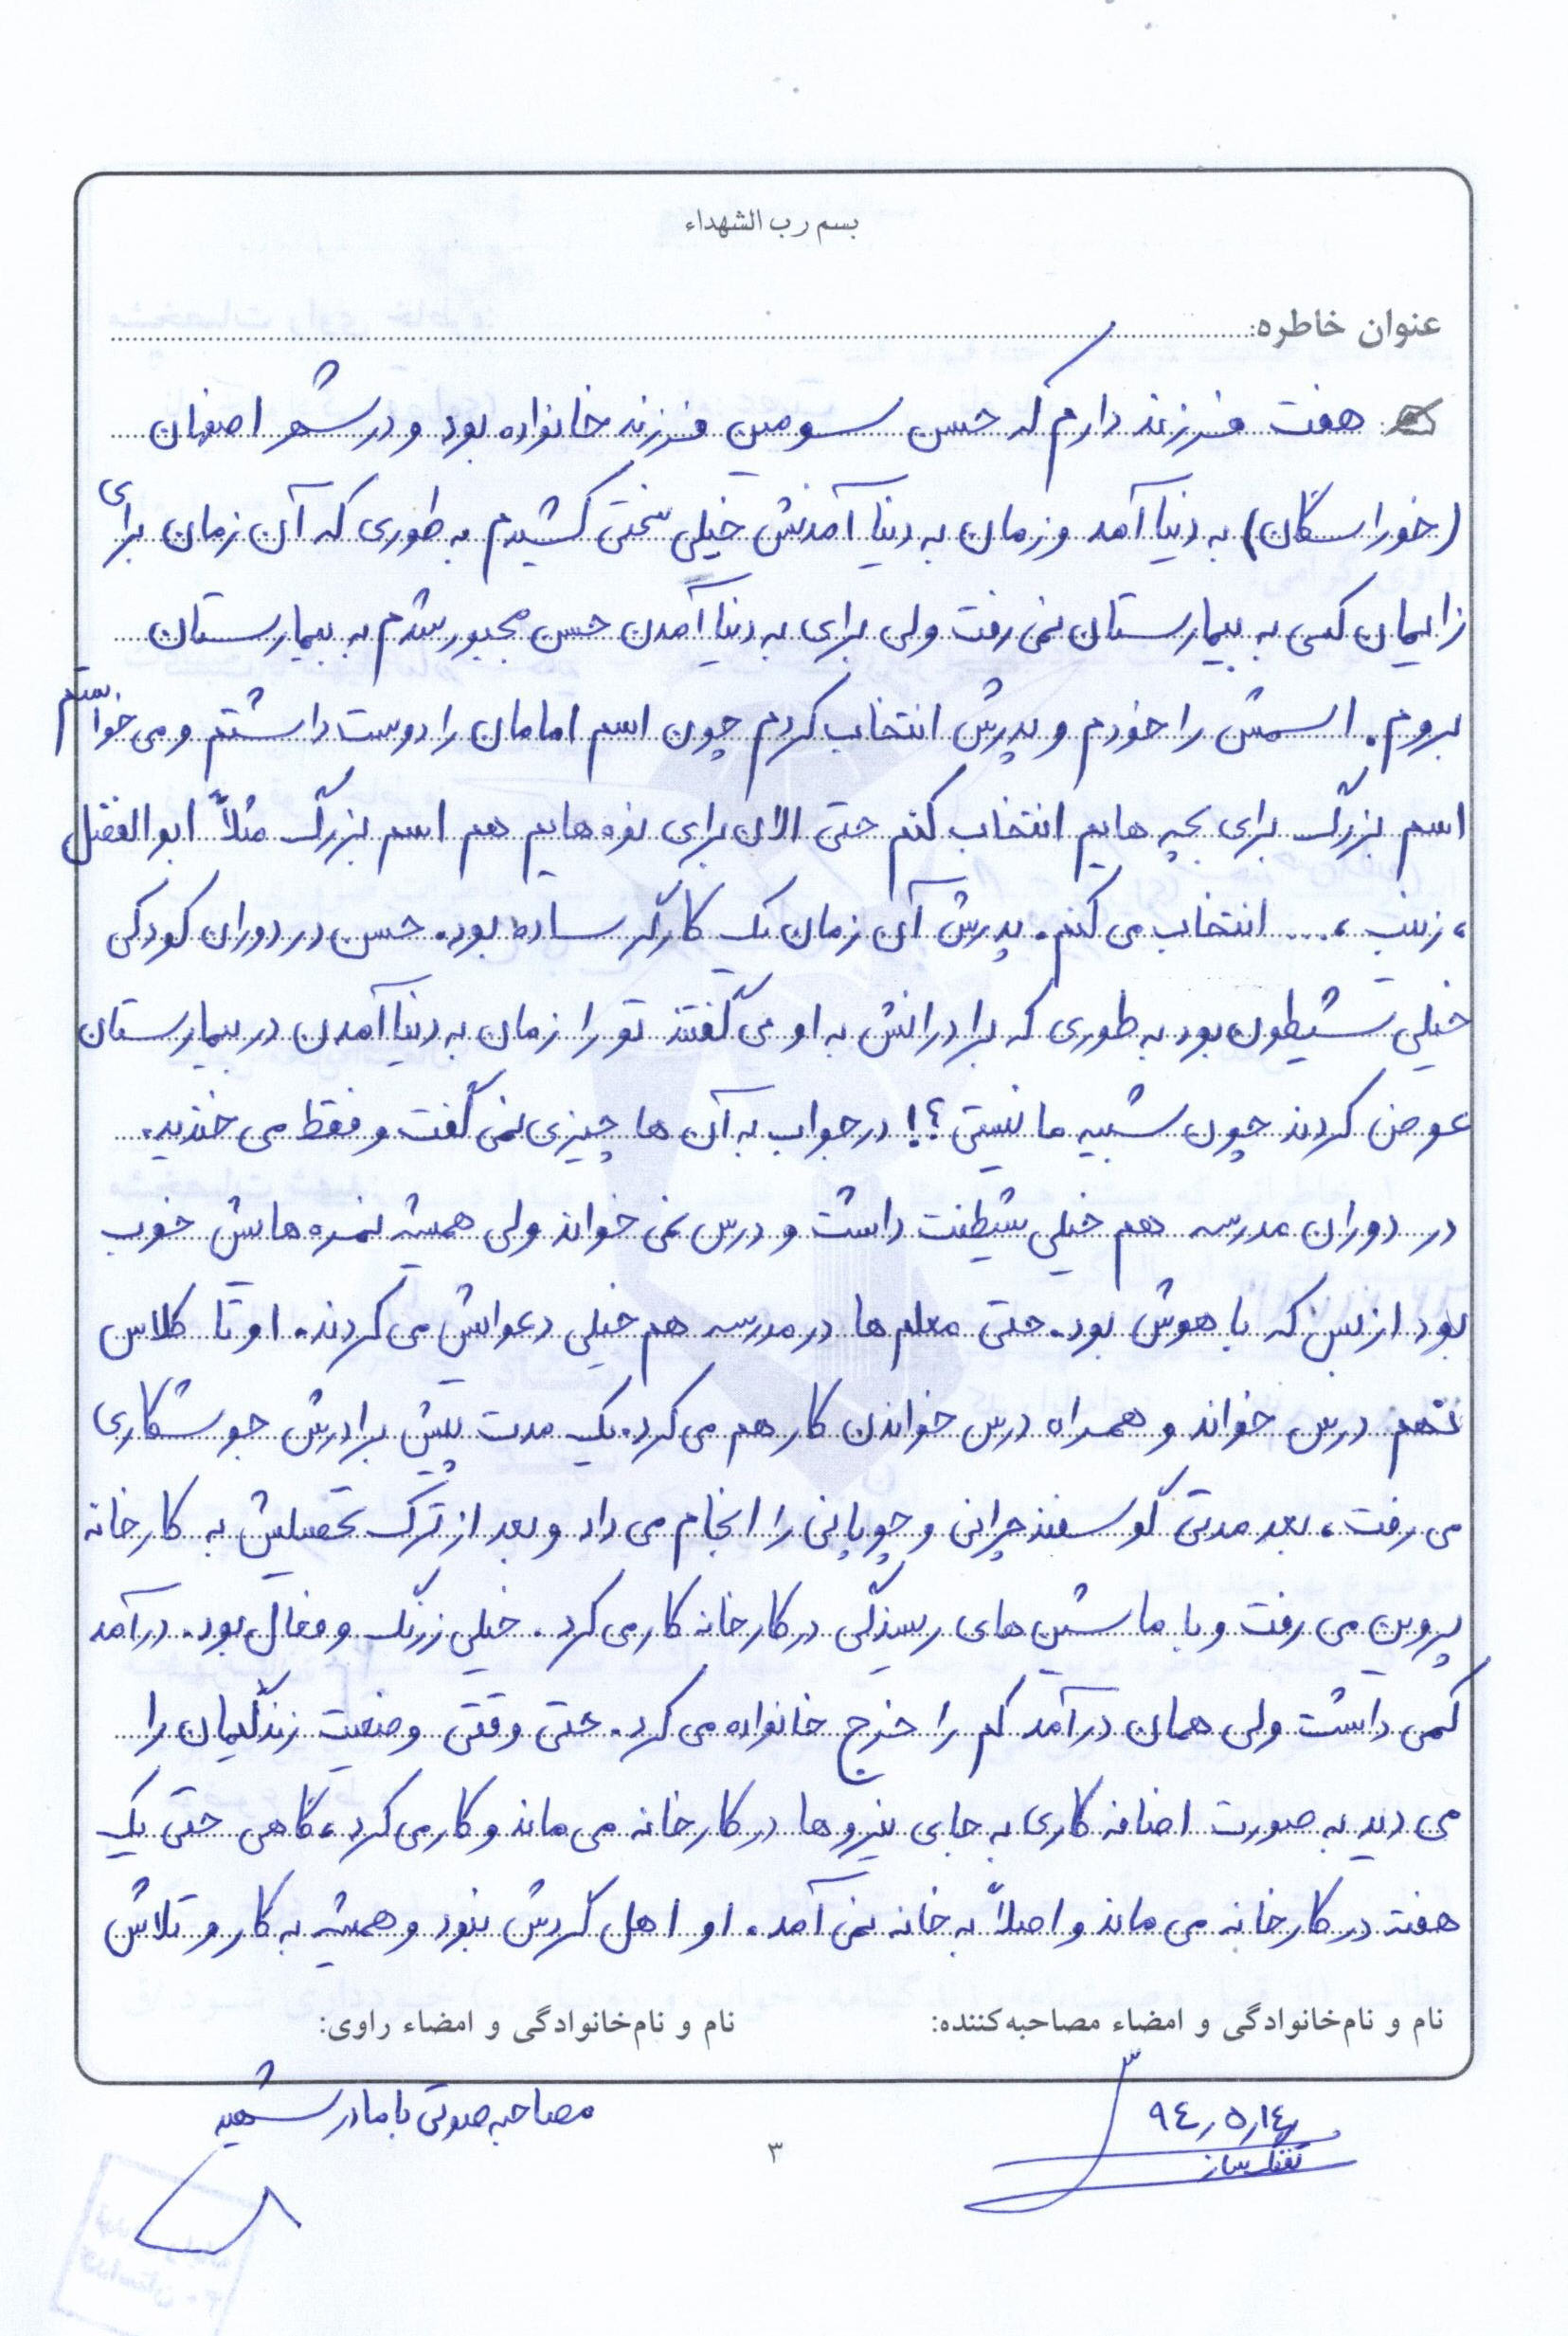 بسم رب الشهداء
عنوان خاطره:
هفت فرزند دارم که حسن سومین فرزند خانواده بود و در شهر اصفهان
(خوراسگان) به دنیا آمد و زمان به دنیا آمدنش خیلی سختی کشیدم به طوری که آن زمان برای
زایمان کسی به بیمارستان نمی رفت ولی برای به دنیا آمدن حسن مجبور شدم به بیمارستان
بروم. اسمش را خودم و پدرش انتخاب کردم چون اسم امامان را دوست داشتم و می خواستم
اسم بزرگ برای بچه هایم انتخاب کنم حتی الان برای نوه هایم هم اسم بزرگ مثلاً ابوالفضل
، زینب ، ... انتخاب می کنم. پدرش آن زمان یک کارگر ساده بود. حسن در دوران کودکی
خیلی شیطون بود به طوری که برادرانش به او می گفتند تو را زمان به دنیا آمدن در بیمارستان
عوض کردند چون شبیه ما نیستی؟! در جواب به آن ها چیزی نمی گفت و فقط می خندید.
در دوران مدرسه هم خیلی شیطنت داشت و درس نمی خواند ولی همیشه نمره هایش خوب
بود از بس که با هوش بود. حتی معلم ها در مدرسه هم خیلی دعوایش می کردند. او تا کلاس
نهم درس خواند و همراه درس خواندن کار هم می کرد. یک مدت پیش برادرش جوشکاری
می رفت، بعد مدتی گوسفندچرانی و چوپانی را انجام می داد و بعد از ترک تحصیلش به کارخانه
پروین می رفت و با ماشین های ریسندگی در کارخانه کار می کرد. خیلی زرنگ و فعال بود. درآمد
کمی داشت ولی همان درآمد کم را خرج خانواده می کرد. حتی وقتی وضعیت زندگیمان را
می دید به صورت اضافه کاری به جای نیروها در کارخانه می ماند و کار می کرد، گاهی حتی یک
هفته در کارخانه می ماند و اصلاً به خانه نمی آمد. او اهل گردش نبود و همیشه به کار و تلاش
نام و نام‌خانوادگی و امضاء مصاحبه‌کننده: نام و نام‌خانوادگی و امضاء راوی:
۹٤٫۵٫۱٤ مصاحبه صوتی با مادر شهید
تفنگ ساز
۳